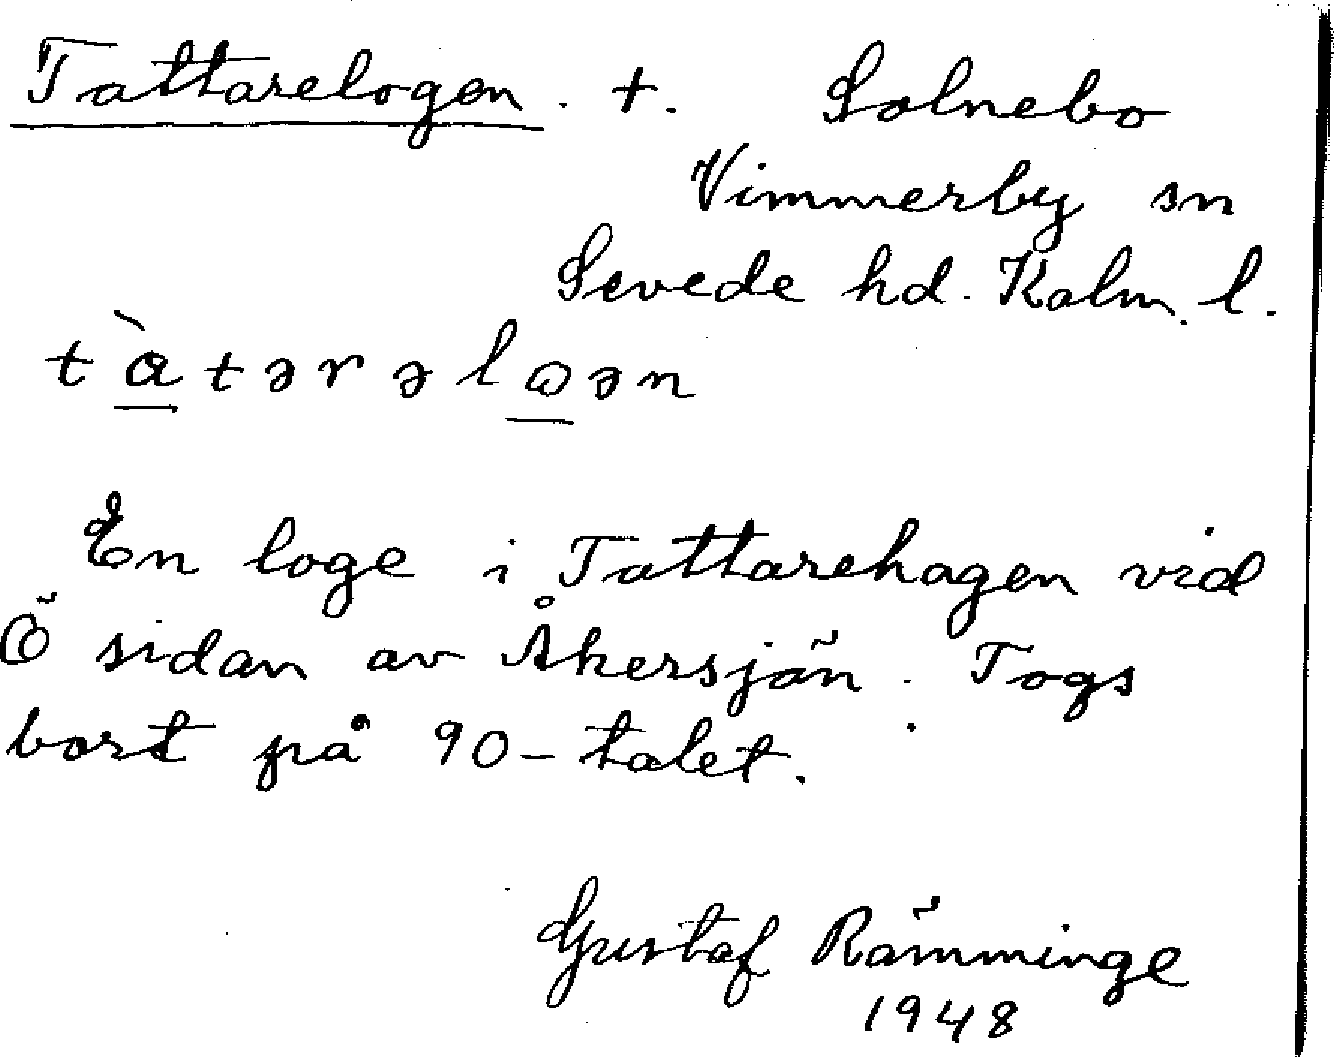 Tattarelogen. +. Solnebo
Vimmerby sn
Sevede hd. Kalm. l.
tàtərəlωən
En loge i Tattarehagen vid
Ö sidan av Åkersjön. Togs
bort på 90-talet.
Gustaf Rämminge
1948